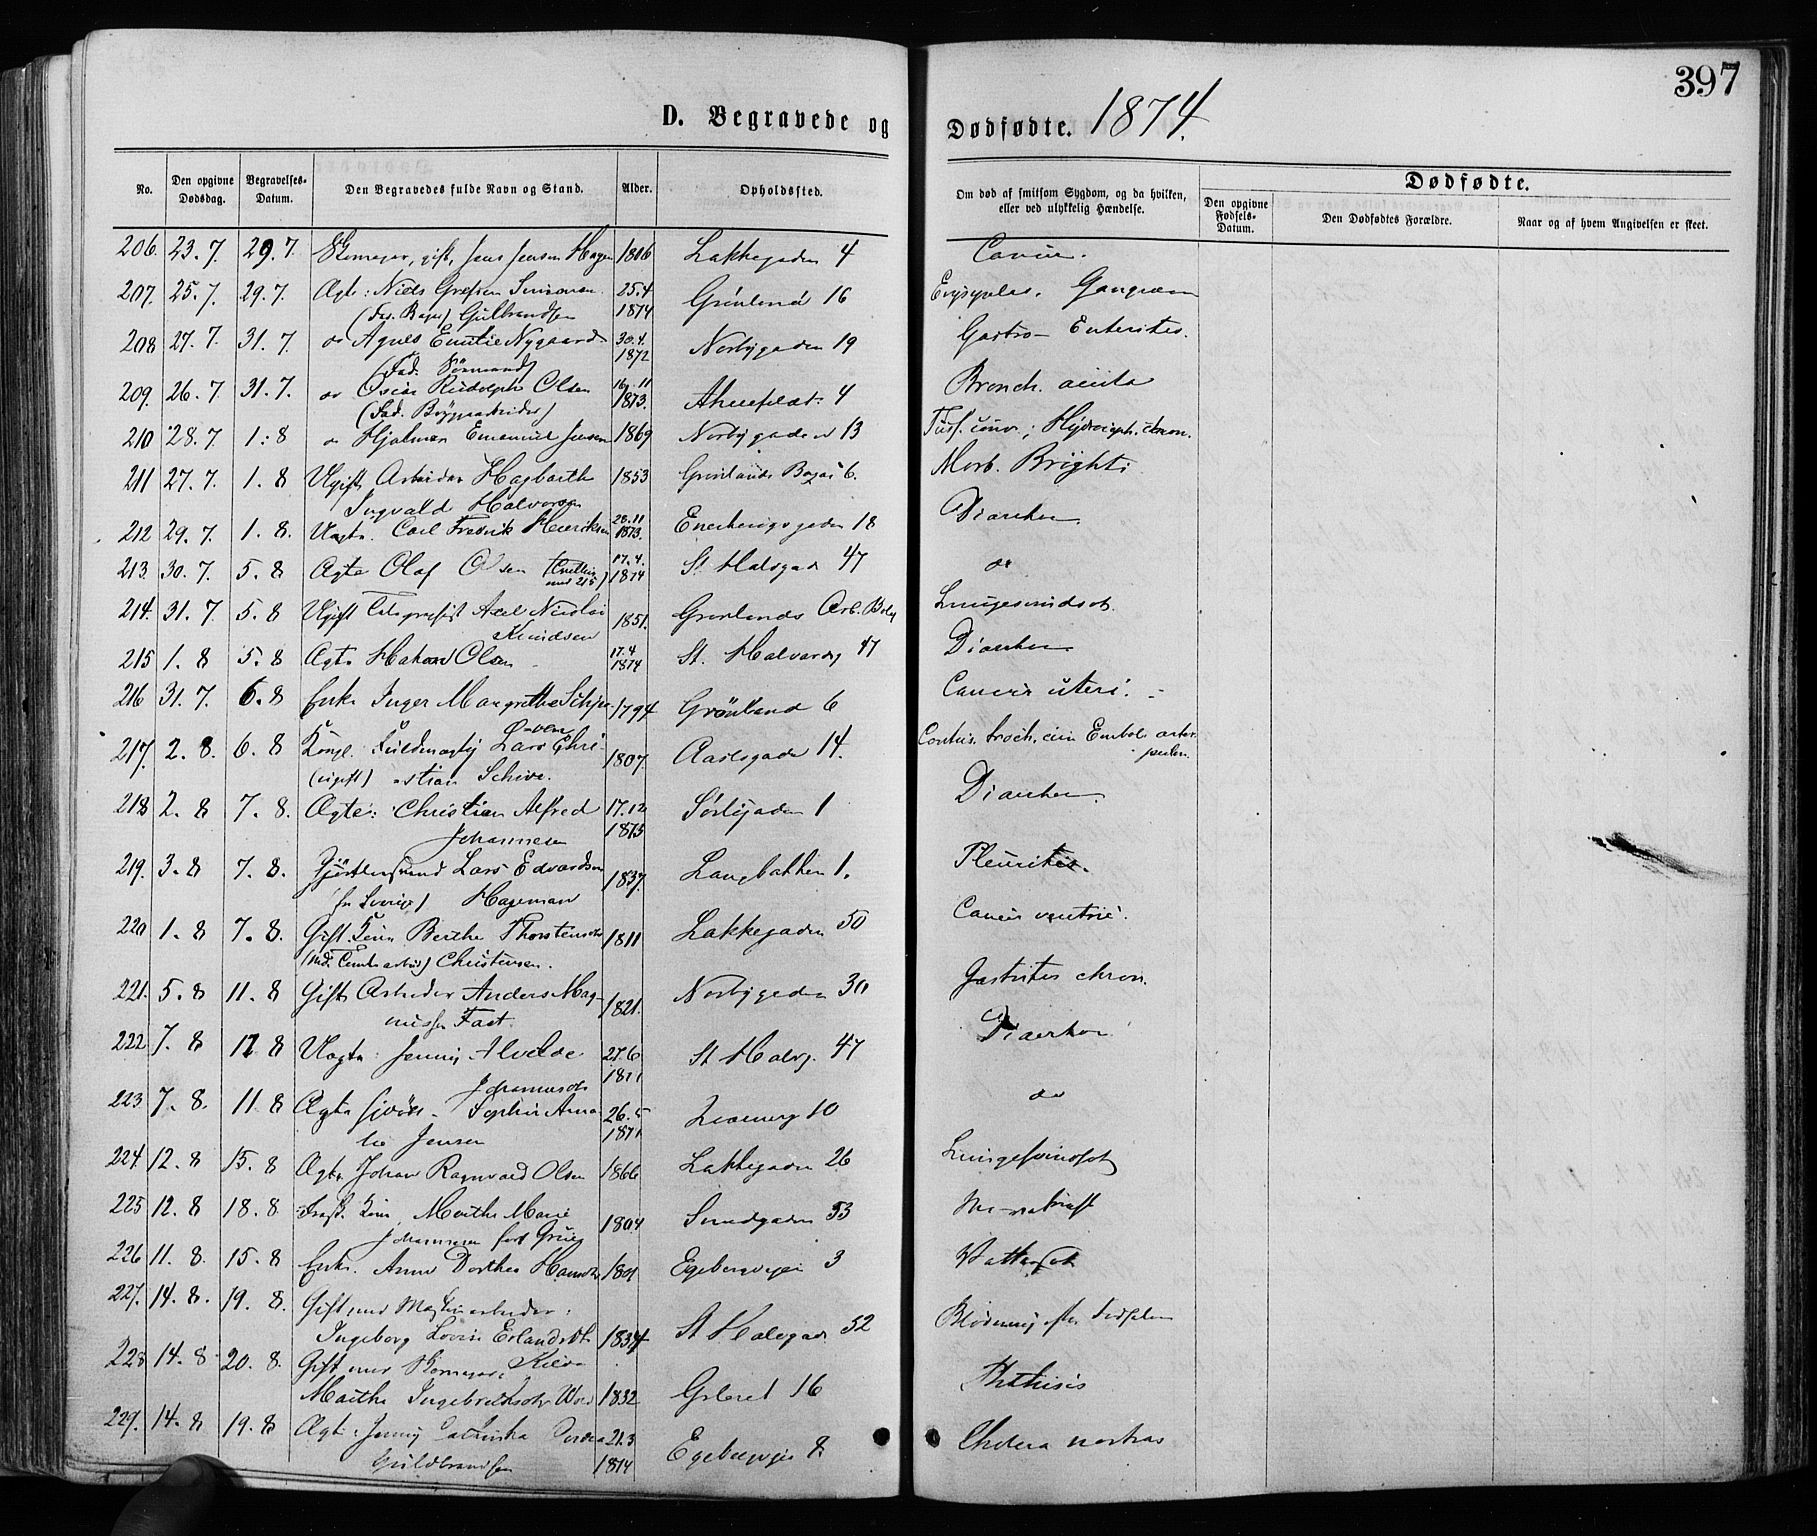 397
D. Begravede og Dødfødte. 1874.
No.
Den opgivne Dødsdag.
Begravelses-Datum.
Den Begravedes fulde Navn og Stand.
Alder.
Opholdssted.
Om død af smitsom Sygdom, og da hvilken, eller ved ulykkelig Hændelse.
Dødfødte.
Den opgivne Fødsels-Datum.
Den Dødfødtes Forældre.
Naar og af hvem Angivelsen er skeet.
206. 23. 7. 29. 7. Skomager, gift, Jens Jensen Hagen 1806 Lakkegaden 4
207. 25. 7. 29. 7. Ægte: Niels 25.4 1874 Grönland 16 Erysipelas. Gangræn
(Fad. Bager) Gulbrandsen
208 27. 7. 31. 7. do Agnes Emilie Nygaard 30.4. 1872 Norbygaden 19 Gastro-Enterites.
209. 26. 7. 31. 7. do Oscar Rudolph Olsen 1873. 4 Bronch. acuta
210 28. 7 1. 8 do Hjalmar Emanuel Jensen 1869 Norbygaden 13 Tuss. conv.; Hydroceph. chron.
211 27. 7. 1. 8 Ugift Arbeider Hagbarth 1853 Grönlands Bazar 6. Morb. Brighti
Ingvald Halvorsen
212 29. 7. 1. 8. Uægte. Carl Fredrik Henriksen 28.11 1873. Enerhaugsgaden 18 Diarrhoe
213. 30. 7. 5. 8 Ægte Olaf Olsen (Tvilling med 215) 17.4. 1874 St Halsgad 47 do
214. 31. 7. 5. 8 Ugift Telegrafist Axel Nicolai 1851. Grönlands Arb. Bolig Lungesvindsot.
Knudsen
215 1. 8 5. 8 Ægte Hakon Olsen 17.4 1874 St. Halvardsg 47 Diarrhoe
216 31. 7. 6. 8 Enke Inger Margrethe 1794 Grönland 6 Cancer uteri.
217. 2. 8. 6. 8 Kongl. Fuldmægtig Lars Chri- 1807. 14. Contus. troch. cum Emboli arter. pulm.
(ugift) -stian Schive.
218 2. 8 7. 8. Ægte: Christian Alfred 17.12 1873 Sörligaden 1 Diarrhoe.
Johannesen
219. 3. 8 7. 8. Lars Edvardsen 1837. Langbakken 1. Pleurites.
(fr Sverige) Hageman
220 1. 8 7. 8. Gift Kone Berthe Thorstensdtr 1811 Lakkegaden 50 Cancer ventric.
Christensen.
221. 5. 8 11. 8 Gift Arbeider Anders Mag- 1821. Norbygaden 30 Gastrites chron.
222. 7. 8 12 8 Uægte. Jenny Alvilde 27.6 St Halvg. 47 Diarrhoe
Johannesdtr
223 7. 8. 11. 8 Ægte Sophie Ama- 26. 10 do
lie Jensen
224. 12. 8 15. 8 Ægte Johan Ragnvald Olsen 1866 Lakkegaden 26 Lungesvindsot
225 12. 8 18. 8 Frask. Kone Marthe Marie 1804 Smedgaden 53
Johannesen
226 11. 8. 15. 8 Enke. Anne Dorthea 1801 Egebergveien 3 Vattersot
227. 14. 8. 19. 8. Gift med
Ingeborg Lovise Erlandsdtr 1834 St Halvgad 52 Blödning efter
228 14. 8 20. 8. Gift med Skomager
Marthe Ingebretsdtr 1832 Grleret 16 Phthisis
229. 14. 8 19. 8 Ægte: Jenny Catrinka 21.3 1874 Egebergvei 8. Cholera nostras
Guldbrandsen